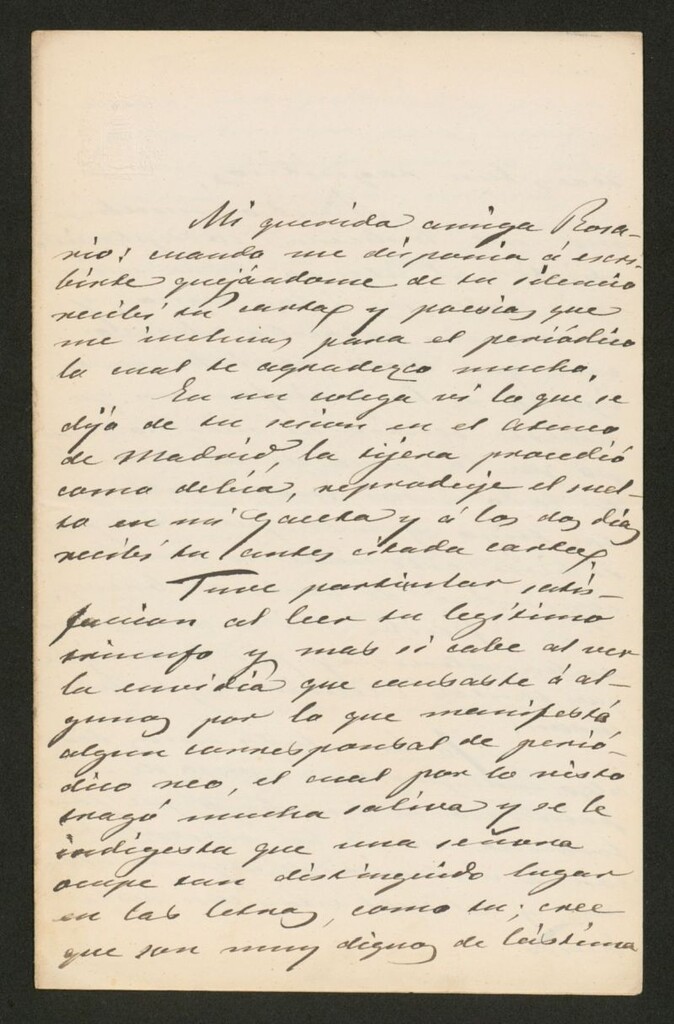 Mi querida amiga Rosa-
rio: cuando me disponia á escri-
birte quejándome de tu silencio
recibí tu carta y poesias que
me incluias para el periódico
lo cual te agradezco mucho.
En un colega ví lo que se
dijo de tu sesion en el Ateneo
de Madrid, la tijera procedió
como debía, reproduje el suel-
to en mi Gaceta y á los dos dias
recibí tu antes citada carta.
Tuve particular satis-
faccion al leer tu legítimo
triunfo y mas si cabe al ver
la envidia que causaste á al-
gunos por lo que manifestó
algun corresponsal de perió-
dico neo, el cual por lo visto
tragó mucha saliva y se le
indigesta que una señora
ocupe tan distinguido lugar
en las letras, como tu; cree
que son muy dignos de lástima